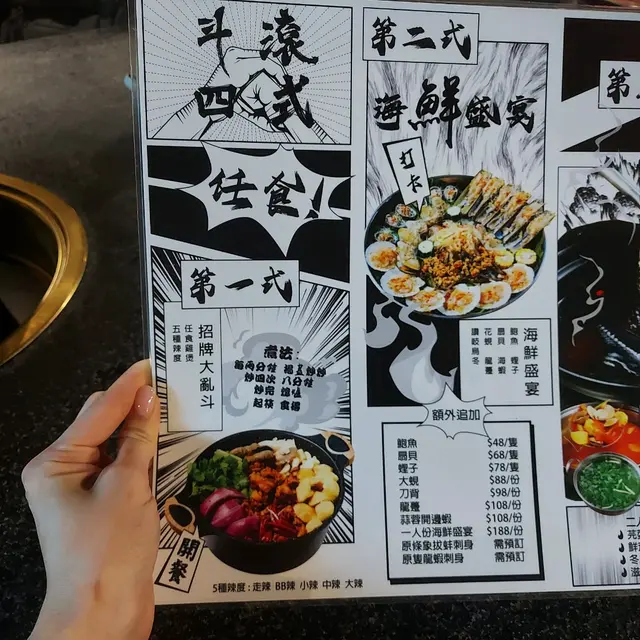 斗滾
四式
任食!
第一式
招牌大亂斗
任食雞煲
五種辣度
煮法:
每兩分付
炒四次 八分付
起筷 食得
開餐
5種辣度: 走辣 BB辣 小辣 中辣 大辣
第二式
海鮮盛宴
打卡
海鮮盛宴
鮑魚 蟶子
扇貝 海蝦
花蜆 龍躉
讚岐烏冬
額外追加
鮑魚 $48/隻
扇貝 $68/隻
蟶子 $78/隻
大蜆 $88/份
刀背 $98/份
龍躉 $108/份
蒜蓉開邊蝦 $108/份
一人份海鮮盛宴 $188/份
原條象拔蚌刺身 需預訂
原隻龍蝦刺身 需預訂
第